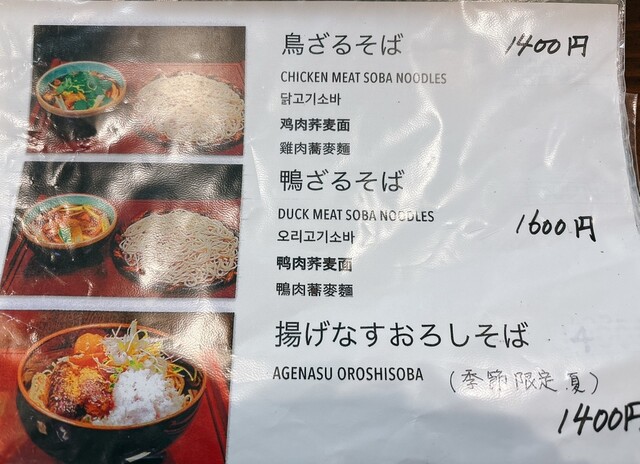 鳥ざるそば 1400円
CHICKEN MEAT SOBA NOODLES
닭고기소바
鸡肉荞麦面
雞肉蕎麥麵
鴨ざるそば
DUCK MEAT SOBA NOODLES 1600円
오리고기소바
鸭肉荞麦面
鴨肉蕎麥麵
揚げなすおろしそば
AGENASU OROSHISOBA (季節限定 夏)
1400円